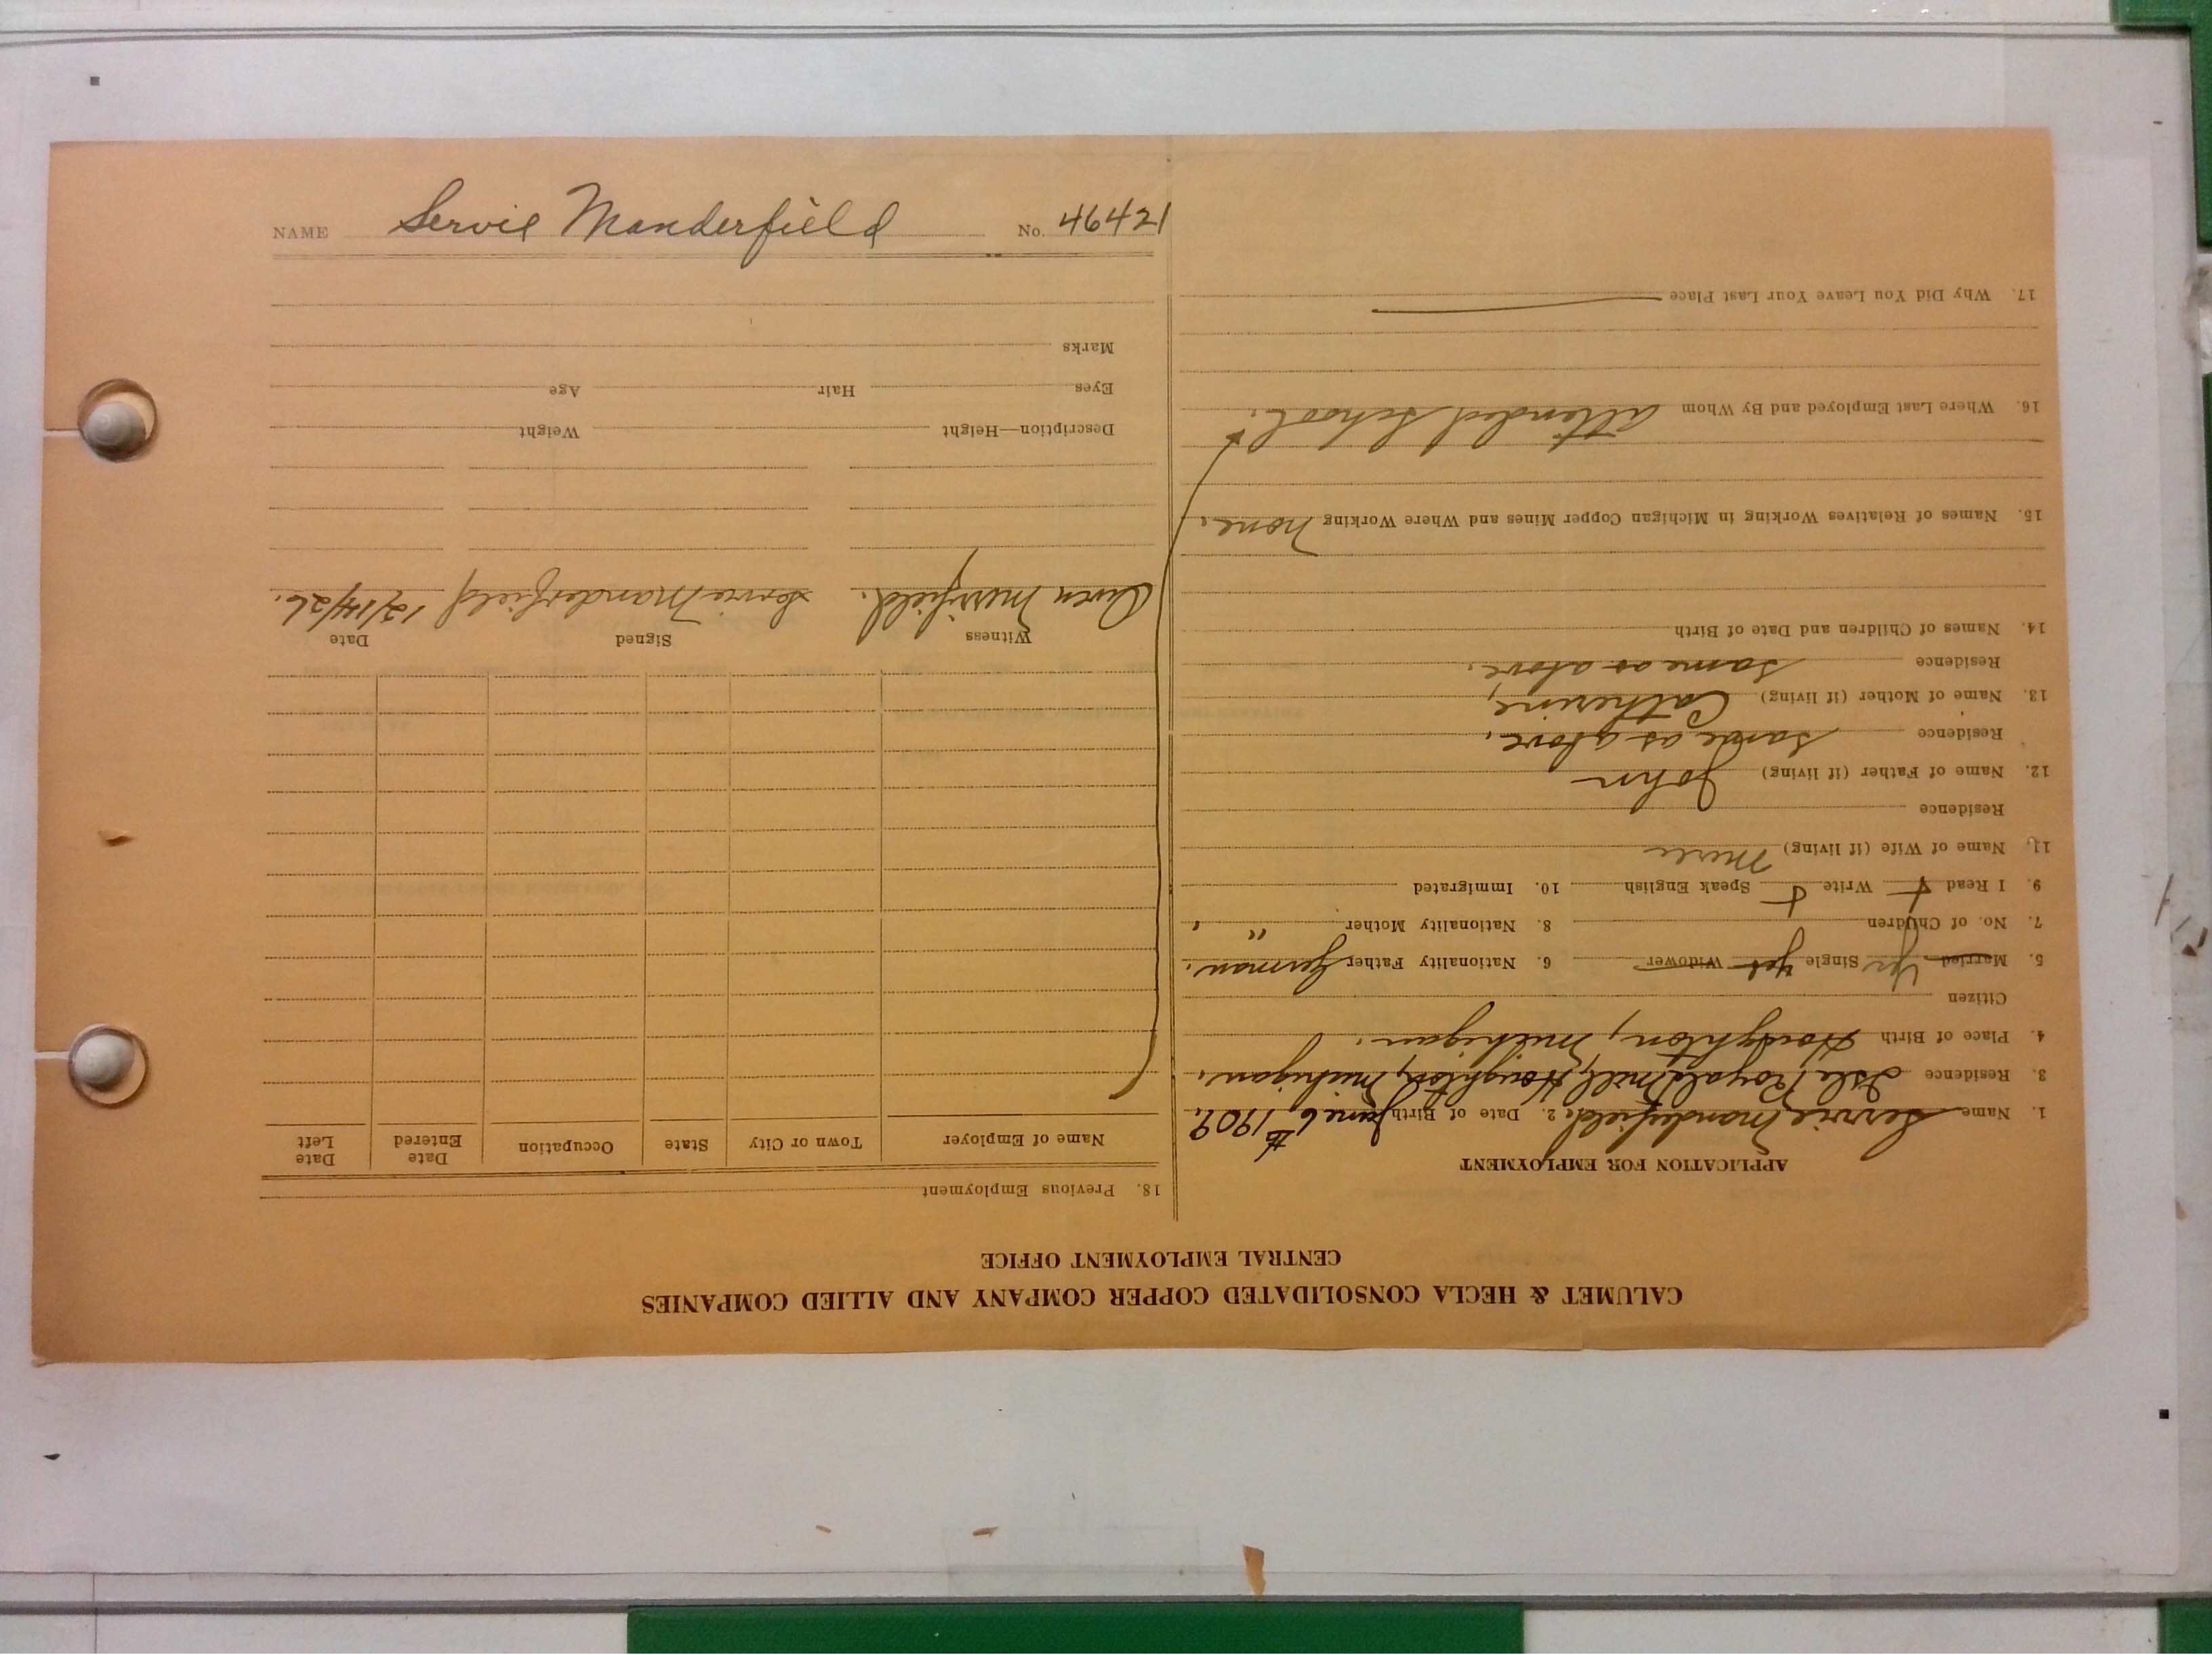 NAME Servie Manderfield No. 46421
CALUMET & HECLA CONSOLIDATED COPPER COMPANY AND ALLIED COMPANIES
CENTRAL EMPLOYMENT OFFICE
APPLICATION FOR EMPLOYMENT
1. Name Servie Manderfield. 2. Date of Birth June 6th 1909.
3. Residence Isle Royale Mill, Houghton, Michigan.
4. Place of Birth Houghton, Michigan.
Citizen
5. Married Single yes Widower 6. Nationality Father German.
7. No. of Children 8. Nationality Mother " .
9. I Read Write Speak English 10. Immigrated
11. Name of Wife (if living)
Residence
12. Name of Father (if living) John
Residence Same as above.
13. Name of Mother (if living) Catherine,
Residence Same as above.
14. Names of Children and Date of Birth
15. Names of Relatives Working in Michigan Copper Mines and Where Working None.
16. Where Last Employed and By Whom Attended School.
17. Why Did You Leave Your Last Place
18. Previous Employment
Name of Employer Town or City State Occupation Date Entered Date Left
Witness Signed Date
Owen Merrifield. Servie Manderfield 12/14/26.
Description—Height Weight
Eyes Hair Age
Marks